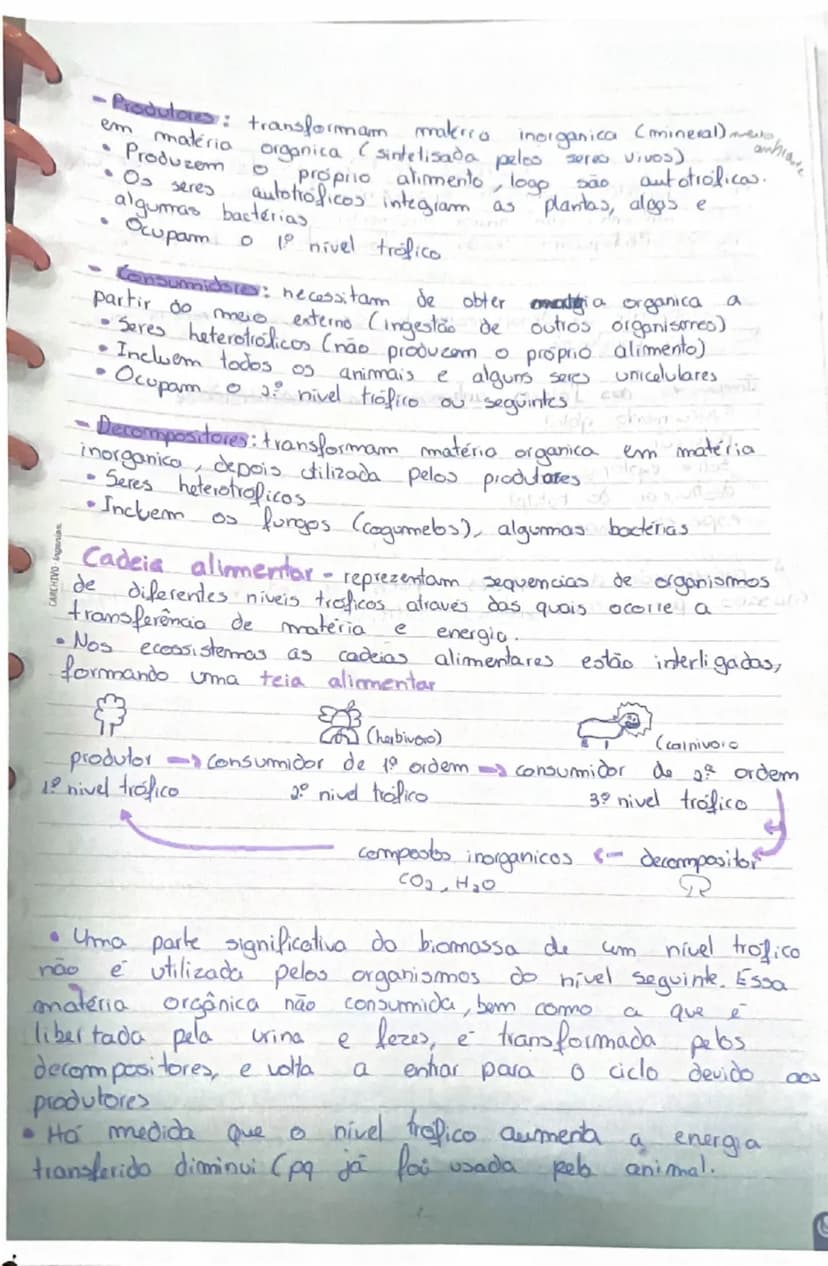 - Produtores: transformam matéria inorganica (mineral) meio ambiente
em matéria organica (sintelisada pelos seres vivos)
• Produzem o próprio alimento, logo são autotróficas.
• Os seres autotróficos integram as plantas, algas e
algumas bactérias
• Ocupam o 1º nível trófico
- Consumidores: necessitam de obter energia organica a
partir do meio externo (ingestão de outros organismos)
• Seres heterotróficos (não produzem o próprio alimento)
• Incluem todos os animais e alguns seres unicelulares
• Ocupam o 2º nível trófico ou seguintes
- Decompositores: transformam matéria organica em matéria
inorganica, depois utilizada pelos produtores
• Seres heterotroficos
• Incluem os fungos (cogumelos), algumas bactérias
Cadeia alimentar - reprezentam sequencias de organismos
de diferentes níveis troficos através das quais ocorre a
transferência de matéria e energia.
• Nos ecossistemas as cadeias alimentares estão interligadas,
formando uma teia alimentar
(herbivoro) (carnivoro
produtor → consumidor de 1ª ordem → consumidor de 2ª ordem
1º nivel trófico 2º nivel trófico 3º nivel trófico
compostos inorganicos ← decompositor
CO2, H2O
• Uma parte significativa da biomassa de um nível trofico
não é utilizada pelos organismos do nível seguinte. Essa
matéria orgânica não consumida, bem como a que é
libertada pela urina e fezes, é transformada pelos
decompositores, e volta a entrar para o ciclo devido aos
produtores
• Há medida que o nível trofico aumenta a energia
transferida diminui (pq já foi usada pelo animal.